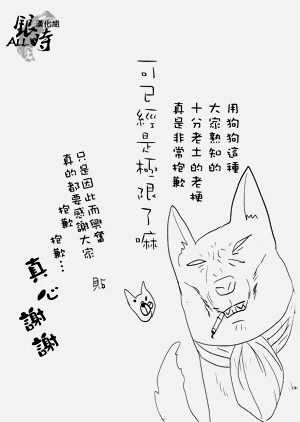 銀時
ALL
漢化組
用狗狗這種
大家熟知的
十分老土的老梗
真是非常抱歉
可已經是極限了嘛
只是因此而興奮
真的都要感謝大家
抱歉
抱歉…
貼
真心謝謝